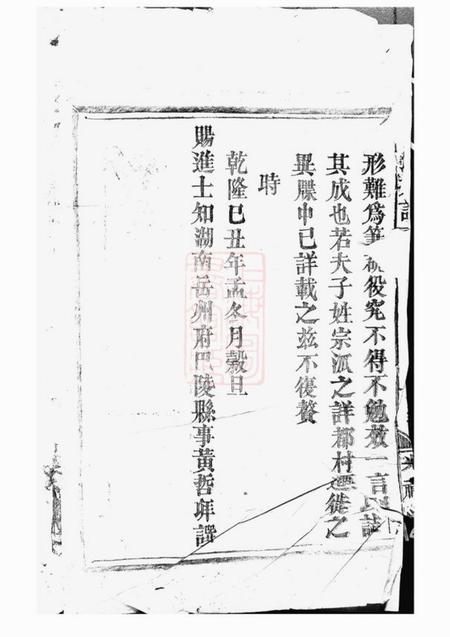 形難爲筆 役究不得不勉效一言以誌
其成也若夫子姓宗派之詳都村遷徙之
異牒中已詳載之茲不復贅
時
乾隆己丑年孟冬月穀旦
賜進士知湖南岳州府巴陵縣事黃哲年譔